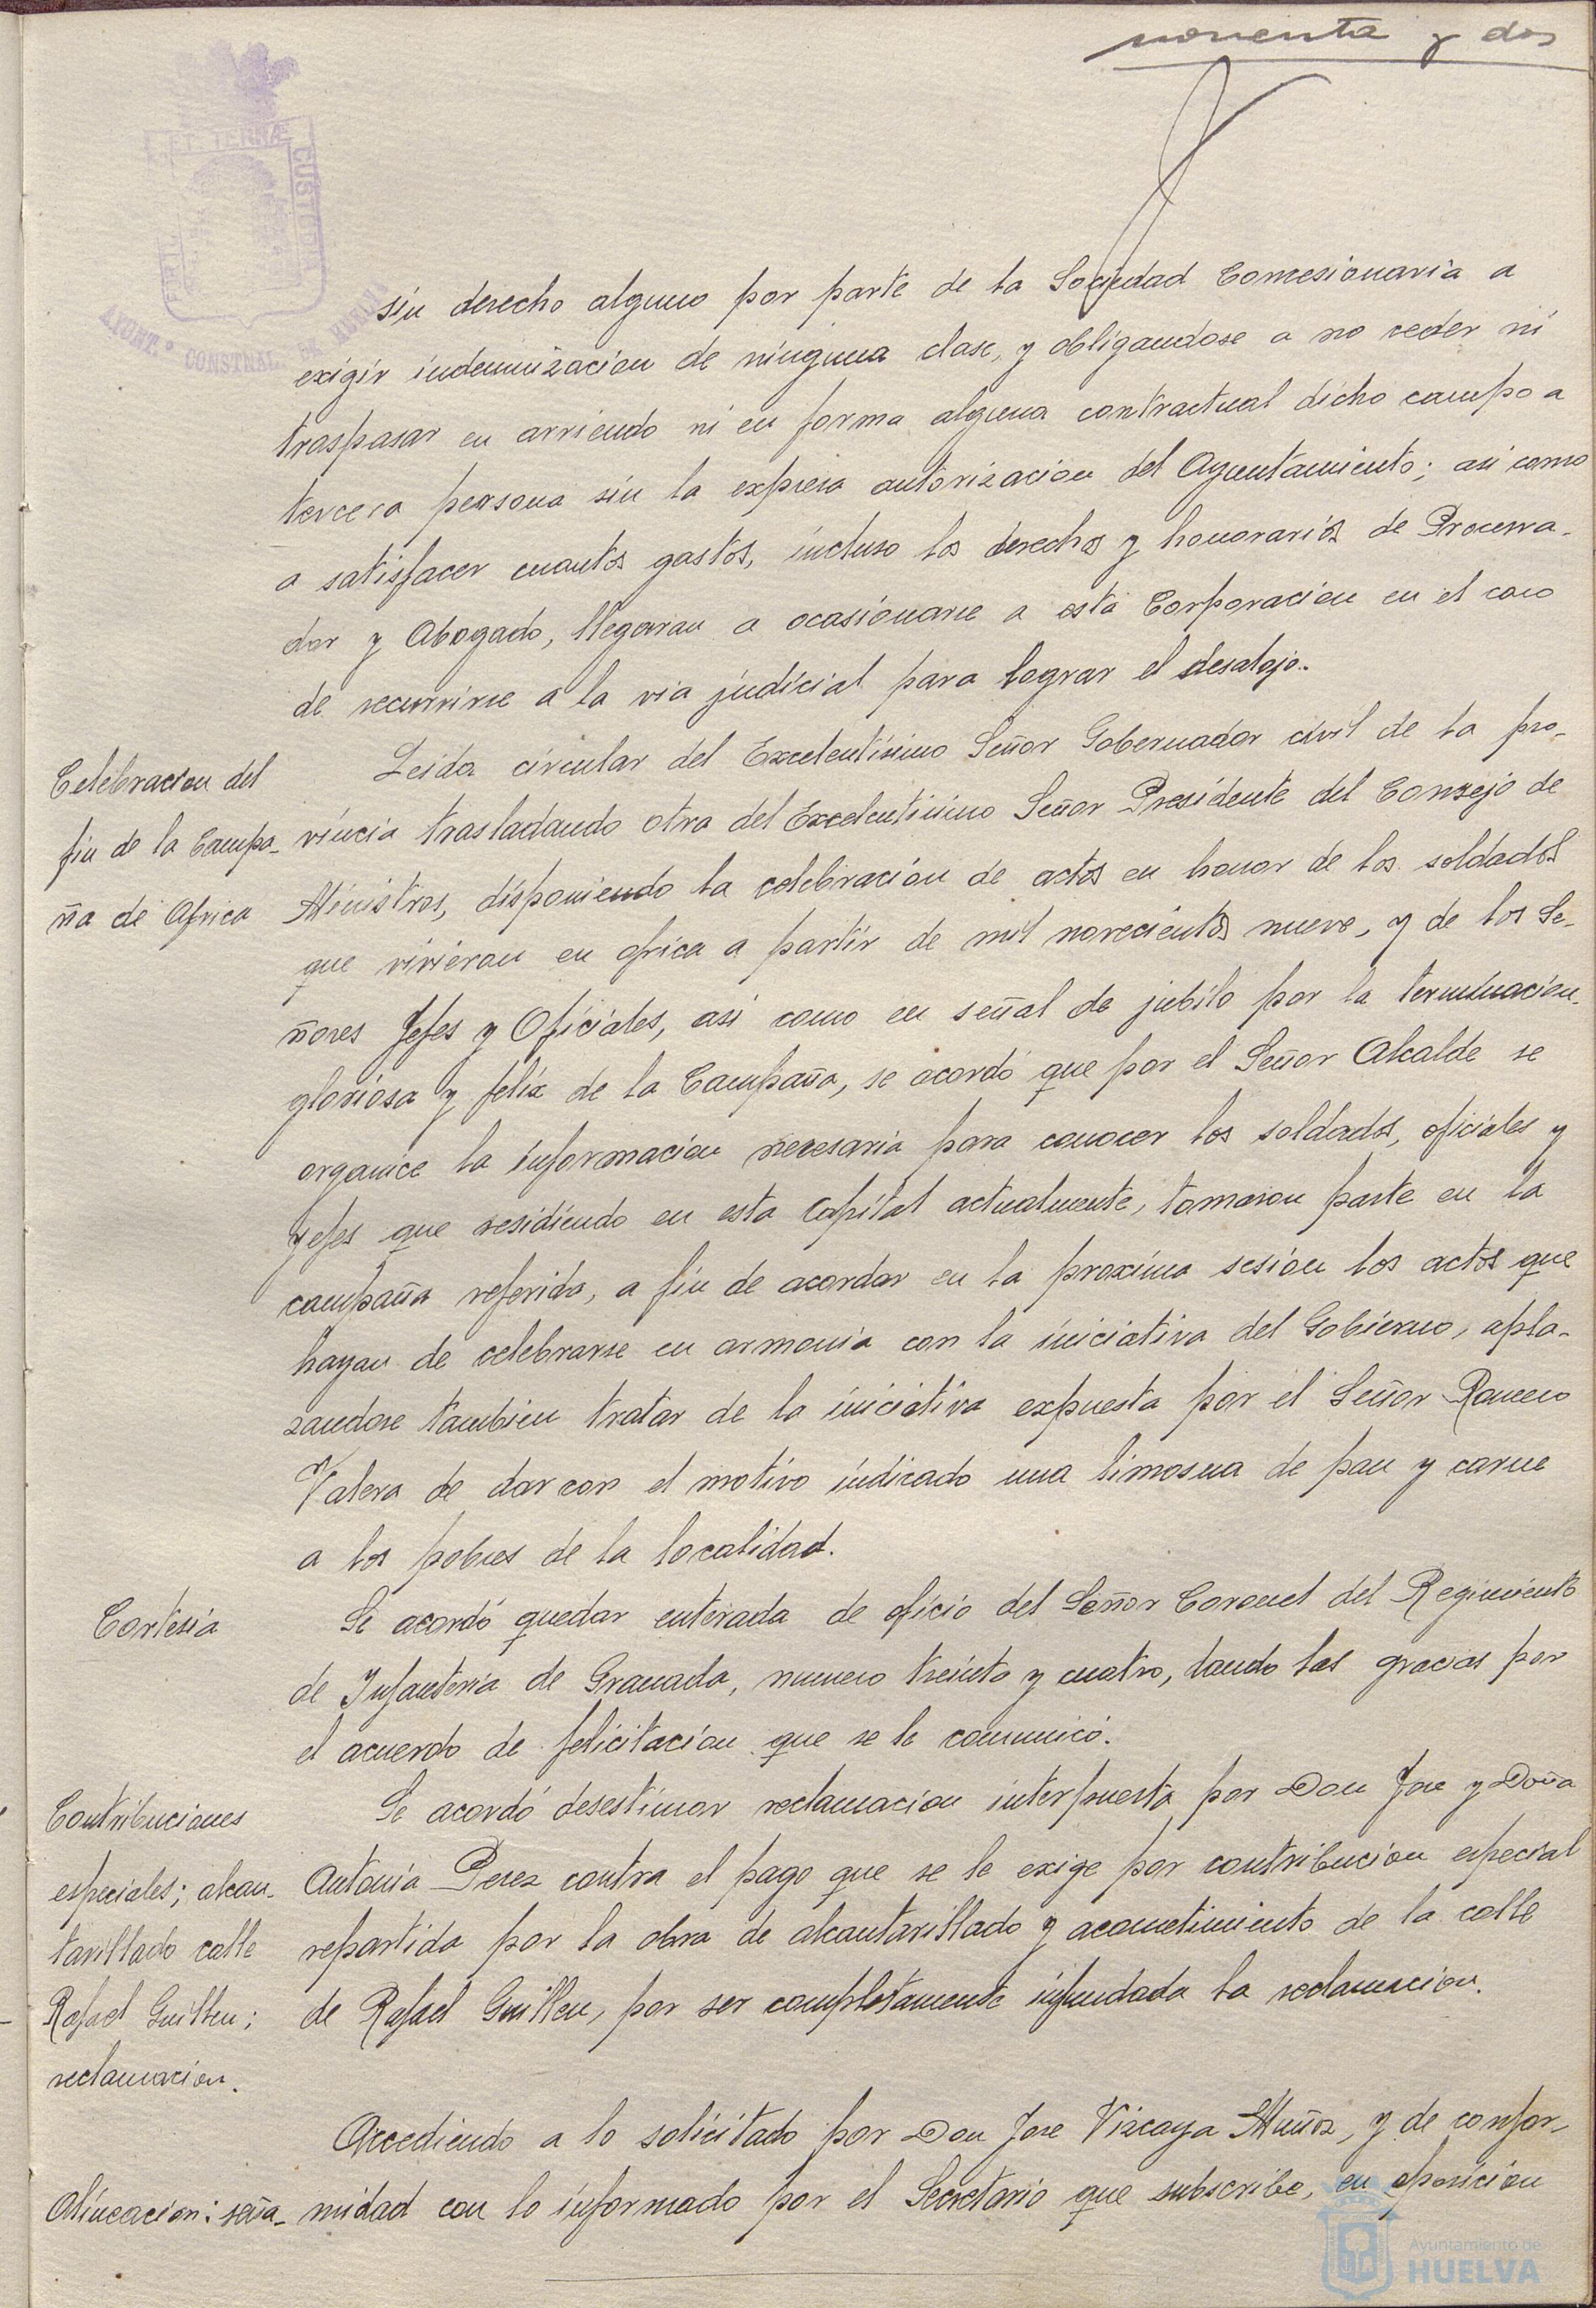 noventa y dos
ET TERRÆ CUSTODI
AYUNT.º CONSTNAL DE HUELVA
sin derecho alguno por parte de la Sociedad Concesionaria a
exigir indemnizacion de ninguna clase, y obligandose a no ceder ni
traspasar en arriendo ni en forma alguna contractual dicho campo a
tercera persona sin la expresa autorizacion del Ayuntamiento; asi como
a satisfacer cuantos gastos, incluso los derechos y honorarios de Procura-
dor y Abogado, llegaran a ocasionarse a esta Corporacion en el caso
de recurrirse a la via judicial para lograr el desalojo.
Celebracion del
fin de la Campa-
ña de Africa
Leida circular del Excelentisimo Señor Gobernador civil de la pro-
vincia trasladando otra del Excelentisimo Señor Presidente del Consejo de
Ministros, disponiendo la celebracion de actos en honor de los soldados
que vivieran en africa a partir de mil novecientos nueve, y de los Se-
ñores Jefes y Oficiales, asi como en señal de jubilo por la terminacion
gloriosa y feliz de la Campaña, se acordó que por el Señor Alcalde se
organice la informacion necesaria para conocer los soldados, oficiales y
jefes que residiendo en esta Capital actualmente, tomaron parte en la
campaña referida, a fin de acordar en la proxima sesion los actos que
hayan de celebrarse en armonia con la iniciativa del Gobierno, apla-
zandose tambien tratar de la iniciativa expuesta por el Señor Romero
Valera de dar con el motivo indicado una limosna de pan y carne
a los pobres de la localidad.
Cortesia
Se acordó quedar enterada de oficio del Señor Coronel del Regimiento
de Infanteria de Granada, numero treinta y cuatro, dando las gracias por
el acuerdo de felicitacion que se le comunicó.
Contribuciones
especiales; alcan-
tarillado calle
Rafael Guillen;
reclamacion.
Se acordó desestimar reclamacion interpuesta por Don Jose y Doña
Antonia Perez contra el pago que se le exige por contribucion especial
repartida por la obra de alcantarillado y acometimiento de la calle
de Rafael Guillen, por ser completamente infundada la reclamacion.
Accediendo a lo solicitado por Don Jose Vizcaya Muñoz, y de confor-
Alineacion: seña-
midad con lo informado por el Secretario que subscribe, en oposicion
Ayuntamiento de
HUELVA